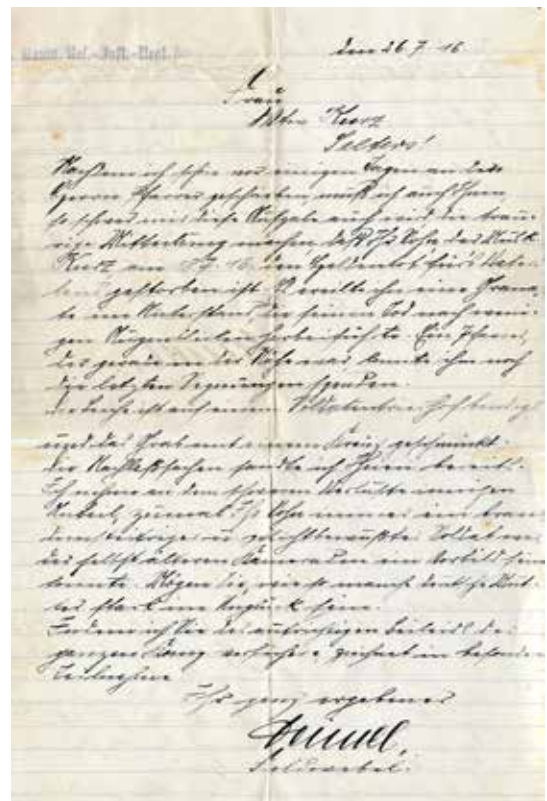 den 26.7.16.
Frau
Wtw. Kurz
Selters!
Nachdem ich schon vor einigen Tagen an den
Herrn Pfarrer geschrieben muß ich auch Ihnen
so schwer mir diese Aufgabe auch wird die trau-
rige Mitteilung machen, daß Ihr Sohn der Musk.
Kurz am 16, den Heldentod für's Vater-
land gestorben ist. Es ereilte ihn eine Grana-
te im Unterstand, die seinen Tod nach weni-
gen Augenblicken herbeiführte. Ein Pfarrer,
der gerade in der Nähe war konnte ihm noch
die letzten Segnungen spenden.
Die Leiche ist auf einem Soldaten
und das Grab mit einem Kreuz geschmückt.
Die Nachlaßsachen sandte ich Ihnen bereits.
Ich nehme an dem schweren Verluste innigen
Anteil, zumal Ihr Sohn immer ein bra-
und pflichtbewußter Soldat war
der selbst älteren Kameraden ein Vorbild sein
konnte. Mögen Sie, wie so manche deutsche Mut-
ter stark im Unglück sein.
Indem ich Sie des aufrichtigen Beileids der
ganzen Komp. versichere, zeichnet in besonderer
Teilnahme
Ihr ganz ergebener
Feldwebel.